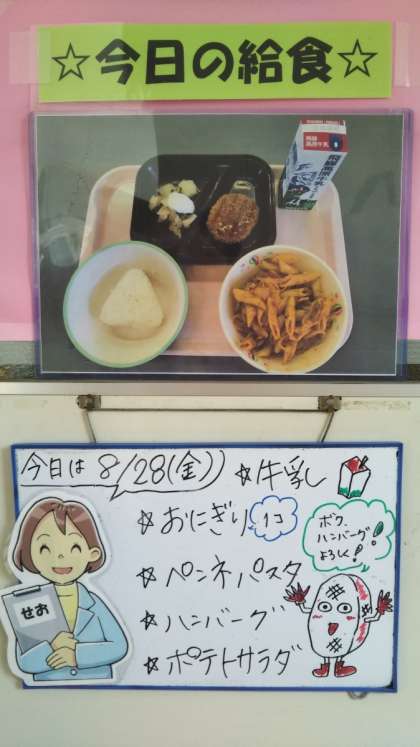 ☆今日の給食☆
飛騨高原牛乳
今日は 8/28(金)
☆牛乳
☆おにぎり 1コ
☆ペンネパスタ
☆ハンバーグ
☆ポテトサラダ
ボク、
ハンバーグ!
よろしく!
せお